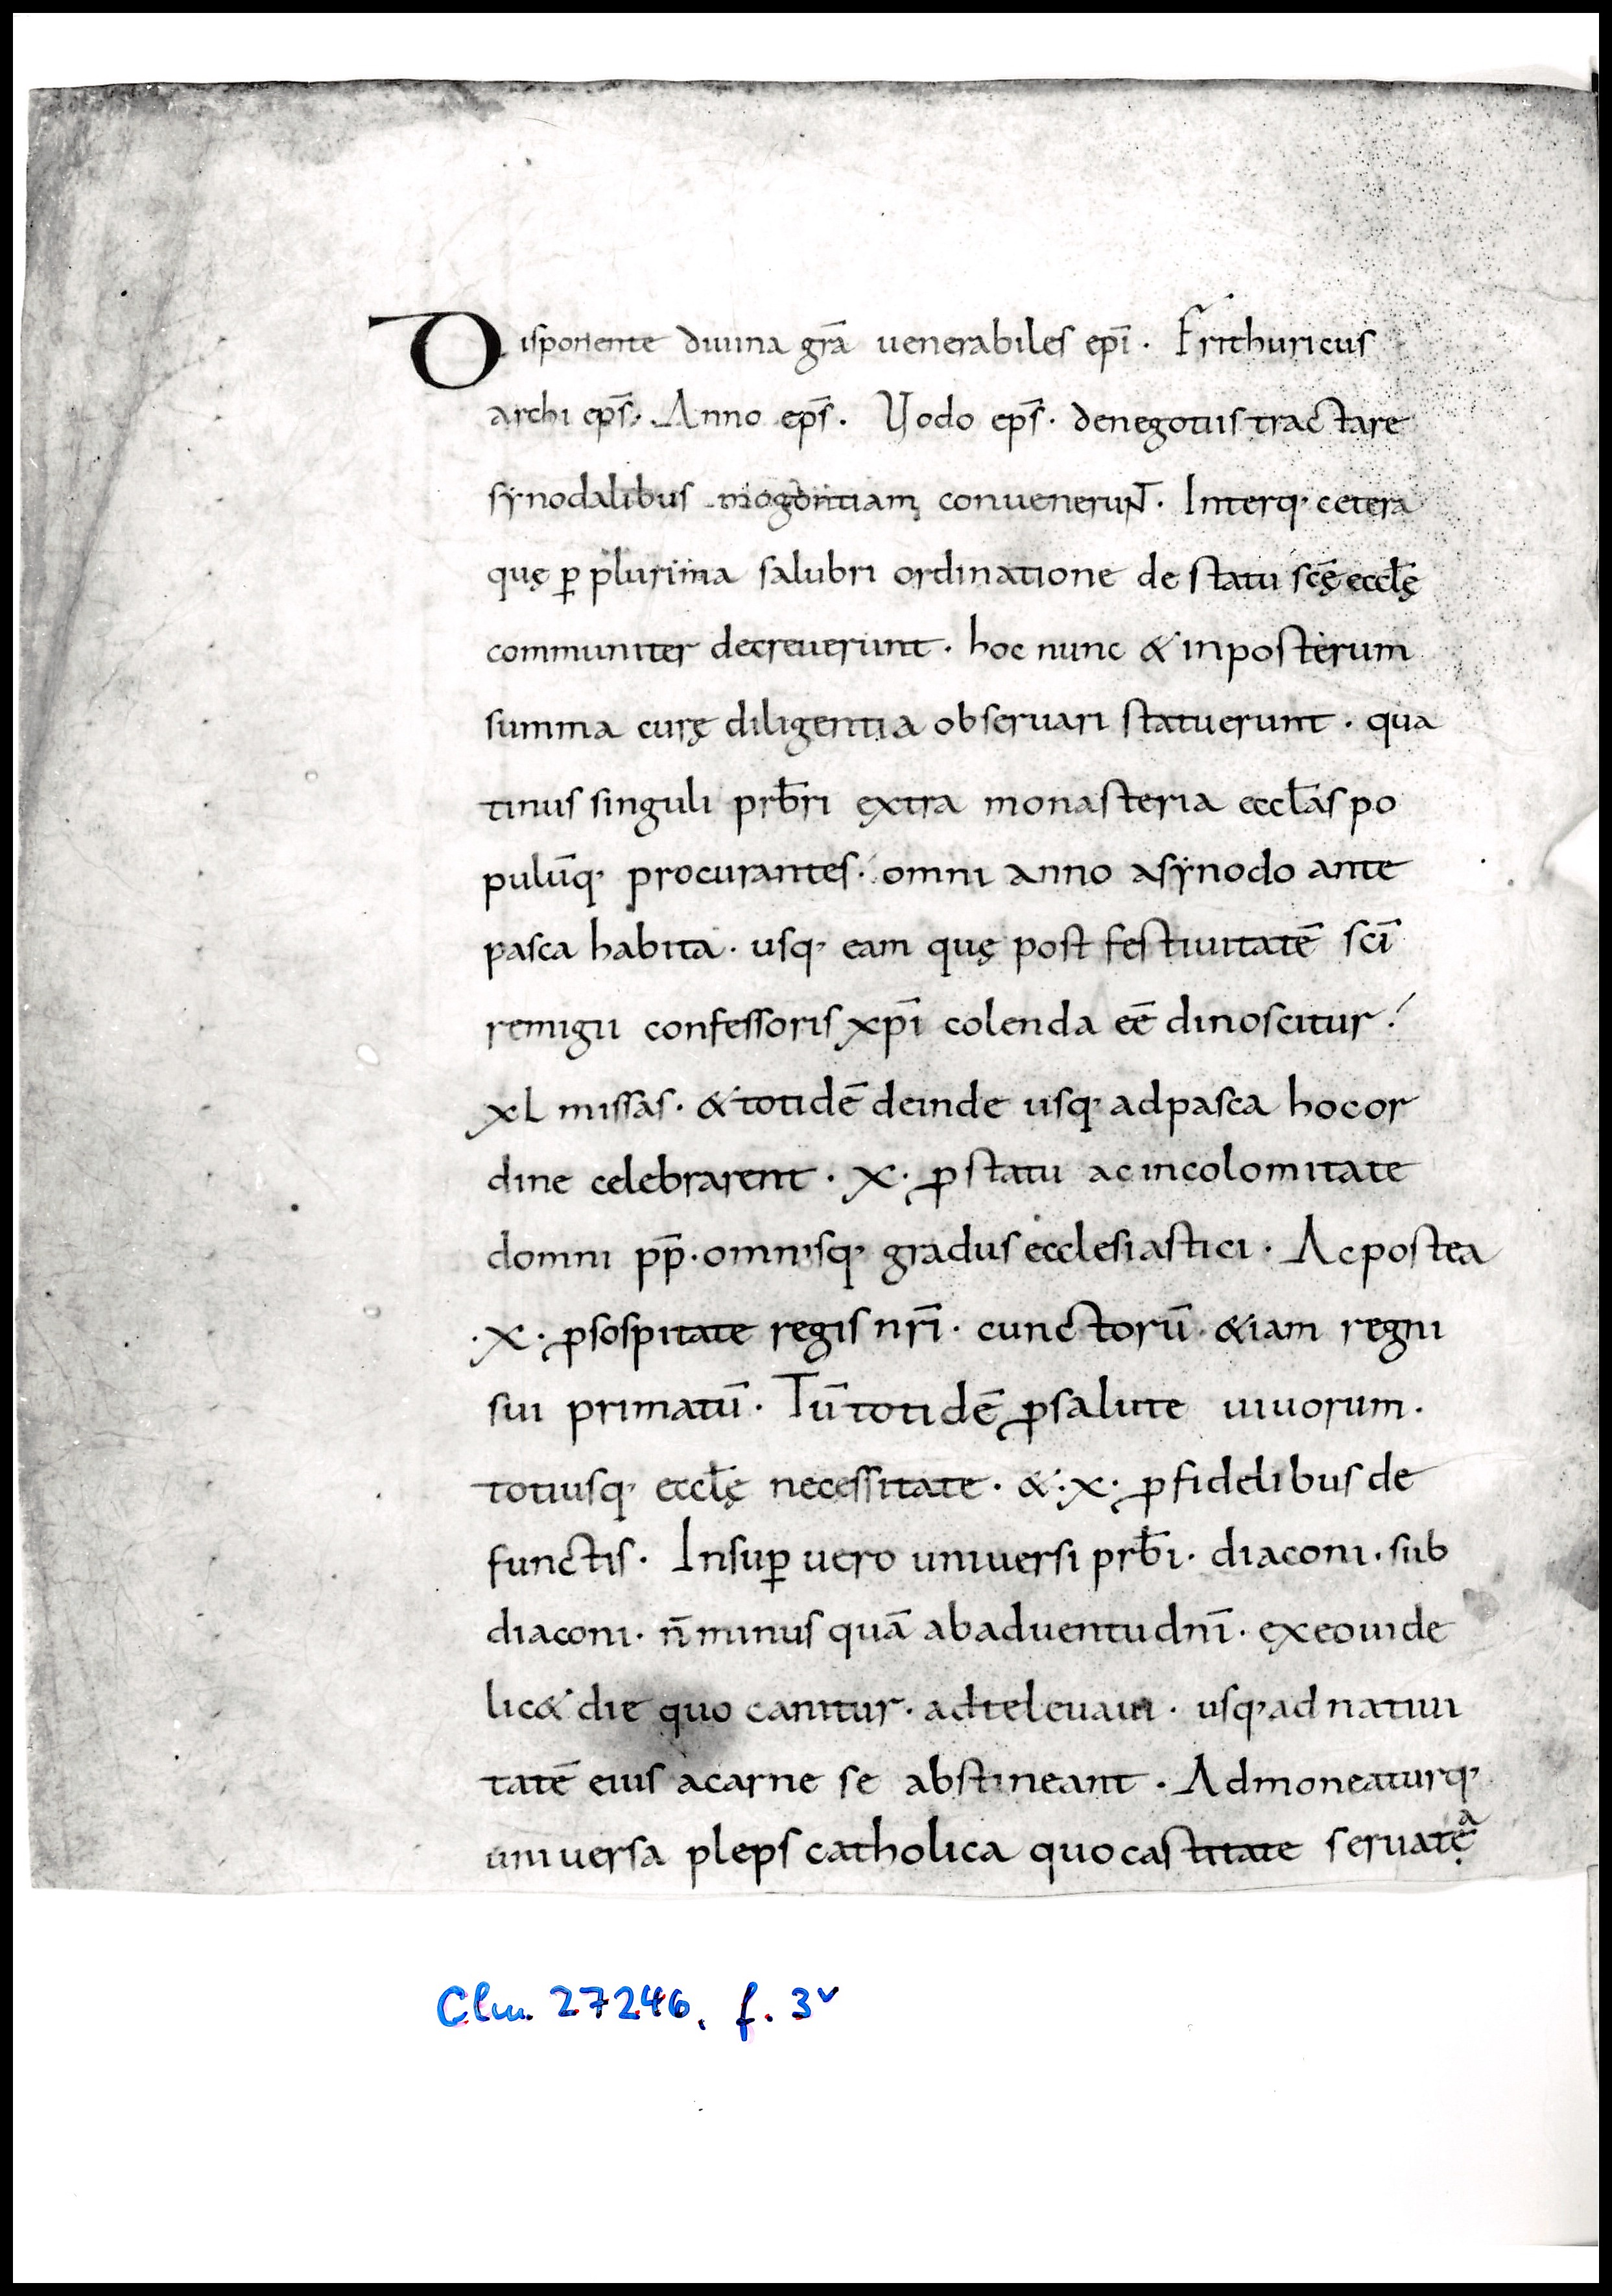 Disponente diuina grā uenerabiles epī. Frithuricus
archi ep̄s. Anno ep̄s. Uodo ep̄s. denegotiis tractare
synodalibus mogontiam conuenerunt. Interq; cetera
quę ꝑ plurima salubri ordinatione de statu scę̄ eccłę
communiter decreuerunt. hoc nunc & inposterum
summa curę diligentia obseruari statuerunt. qua
tinus singuli prb̄ri extra monasteria eccłas po
pulūq; procurantes. omni anno asynodo ante
pasca habita. usq; eam quę post festiuitatē scī
remigii confessoris xpī colenda eē dinoscitur.
xl missas. & totidē deinde usq; adpasca hocor
dine celebrarent. x. ꝓ statu ac incolomitate
domni pp̄. omnisq; gradus ecclesiastici. Acpostea
.x. ꝓsospitate regis nrī. cunctorū &iam regni
sui primatū. Tū totidē ꝓsalute uiuorum.
totiusq; eccłę necessitate. &.x. ꝓ fidelibus de
functis. Insuꝑ uero uniuersi prb̄i. diaconi. sub
diaconi. n̄ minus quā abaduentu dnī. ex eo uide
lic& die quo canitur. adteleuaui. usq; ad natiui
tatē eius acarne se abstineant. Admoneaturq;
uniuersa pleps catholica quo castitate seruatę̣ᵃ
Clm. 27246, f. 3ᵛ